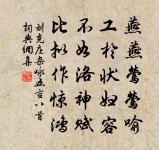 燕燕莺莺喻
工於状妇容
不如洛神赋
比拟作惊鸿
刘克庄杂咏五言八首
词典网集